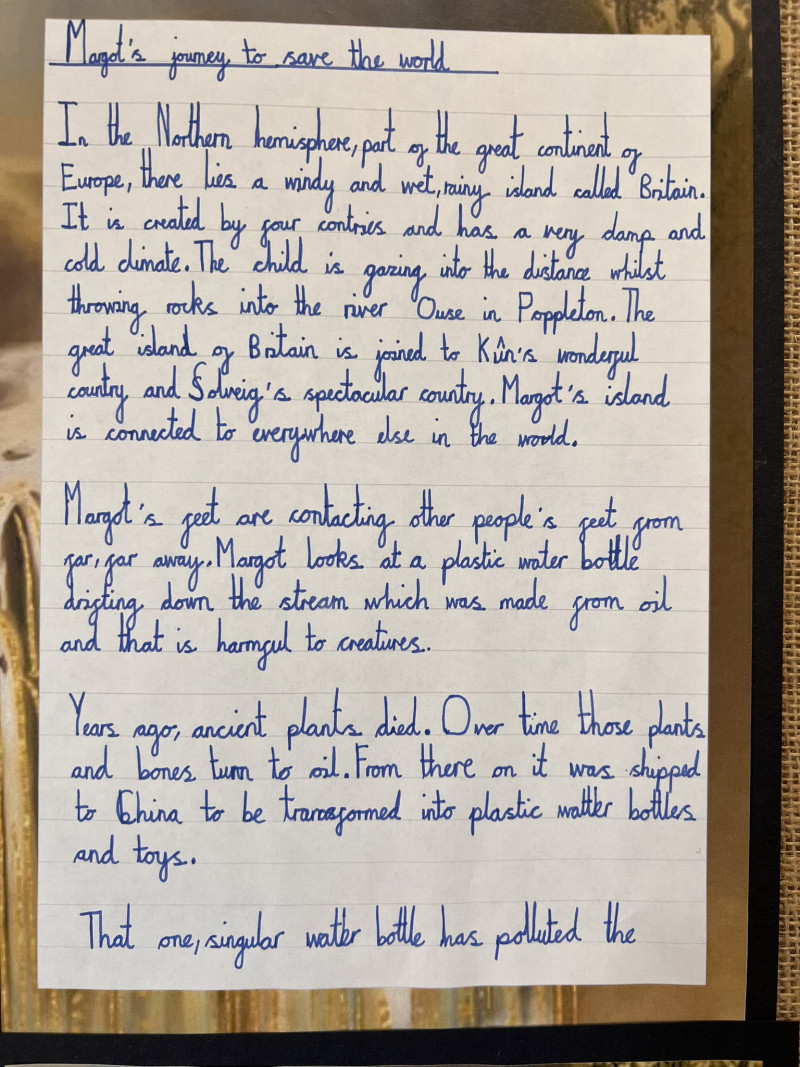 Margot's journey to save the world
In the Northern hemisphere, part of the great continent of
Europe, there lies a windy and wet, rainy island called Britain.
It is created by four contries and has a very damp and
cold climate. The child is gazing into the distance whilst
throwing rocks into the river Ouse in Poppleton. The
great island of Britain is joined to Kûn's wonderful
country and Solveig's spectacular country. Margot's island
is connected to everywhere else in the world.
Margot's feet are contacting other people's feet from
far, far away. Margot looks at a plastic water bottle
drifting down the stream which was made from oil
and that is harmful to creatures.
Years ago, ancient plants died. Over time those plants
and bones turn to oil. From there on it was shipped
to China to be transformed into plastic watter bottles
and toys.
That one, singular watter bottle has polluted the